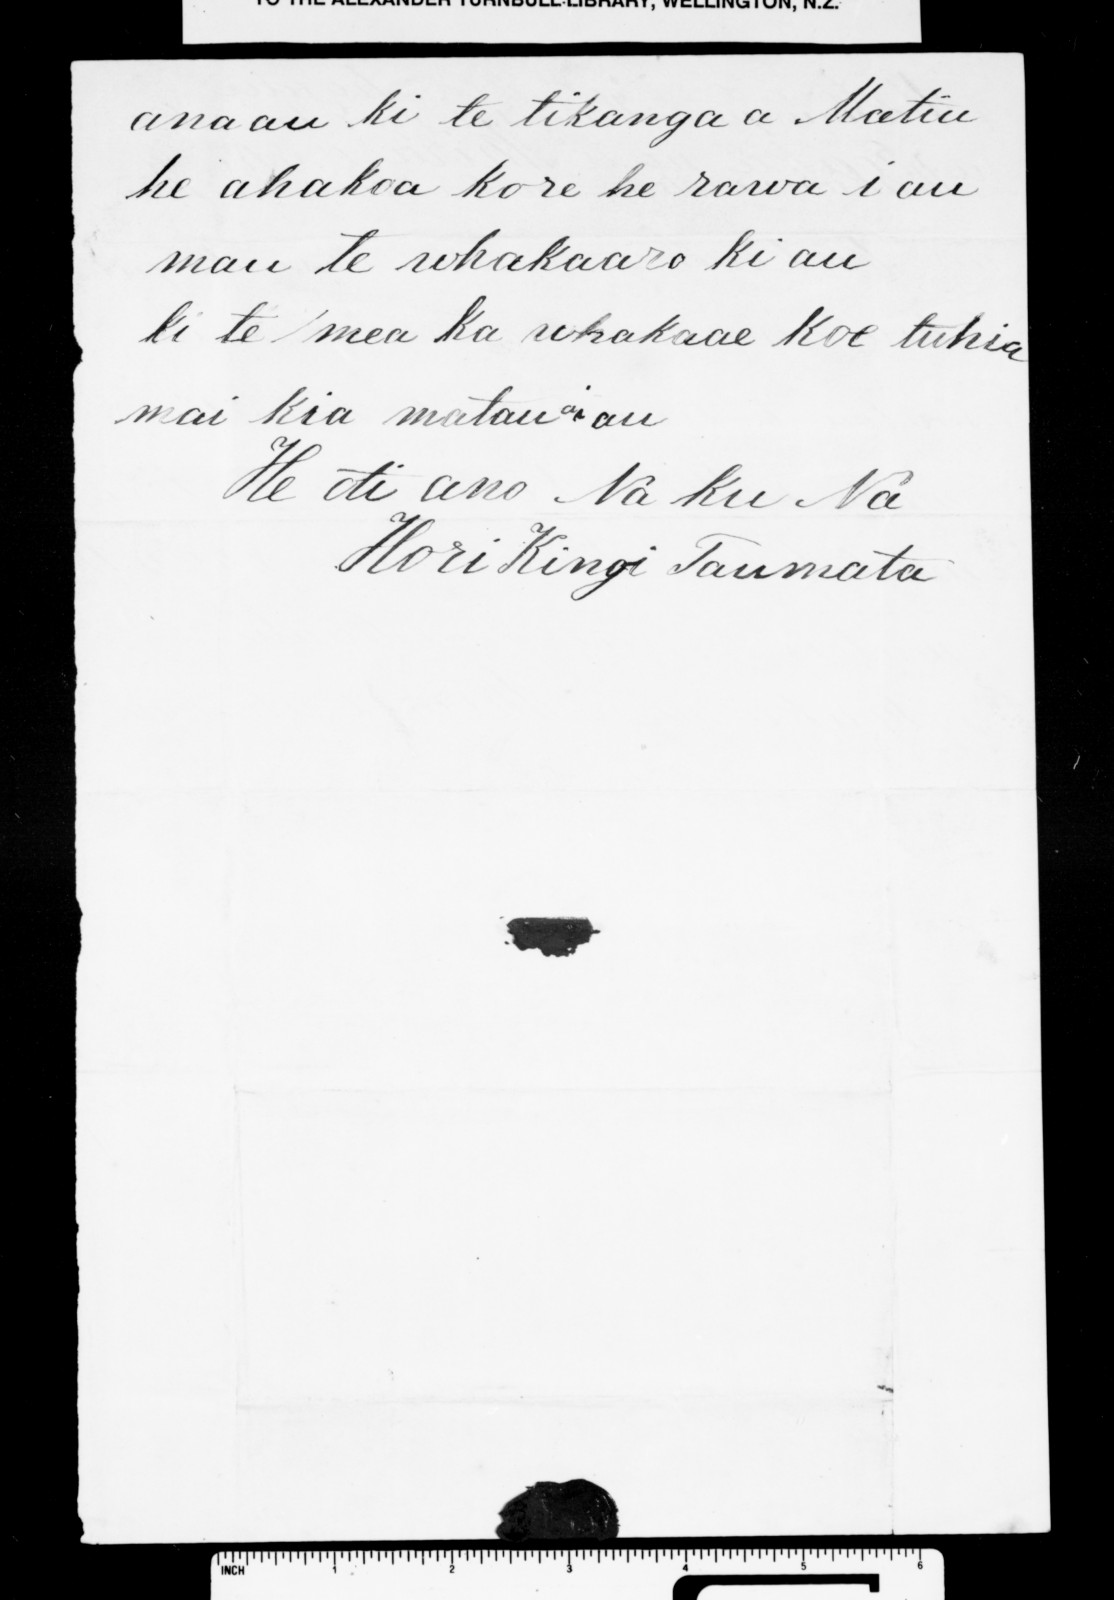 TO THE ALEXANDER TURNBULL LIBRARY, WELLINGTON, N.Z.
ana au ki te tikanga a Matiu
he ahakoa kore he rawa i au
mau te whakaaro ki au
ki te mea ka whakaae koe tuhia
mai kia matau ai au
He oti ano Na ku Na
Hori Kingi Taumata
INCH 1 2 3 4 5 6